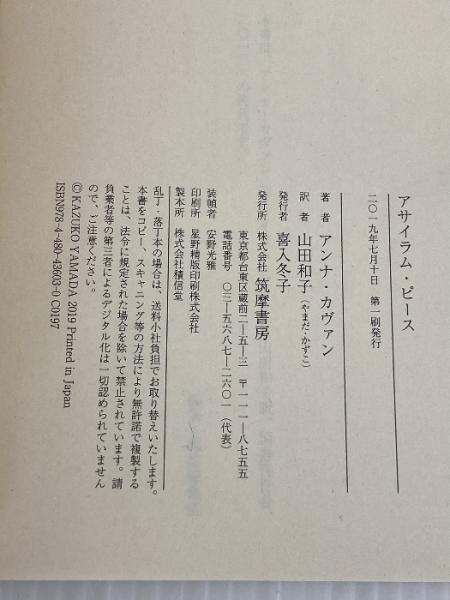 アサイラム・ピース
二〇一九年七月十日　第一刷発行
著者　アンナ・カヴァン
訳者　山田和子（やまだ・かずこ）
発行者　喜入冬子
発行所　株式会社　筑摩書房
東京都台東区蔵前二―五―三　〒一一一―八七五五
電話番号　〇三―五六八七―二六〇一（代表）
装幀者　安野光雅
印刷所　星野精版印刷株式会社
製本所　株式会社積信堂
乱丁・落丁本の場合は、送料小社負担でお取り替えいたします。
本書をコピー、スキャニング等の方法により無許諾で複製する
ことは、法令に規定された場合を除いて禁止されています。請
負業者等の第三者によるデジタル化は一切認められていません
ので、ご注意ください。
© KAZUKO YAMADA 2019 Printed in Japan
ISBN978-4-480-43603-0 C0197